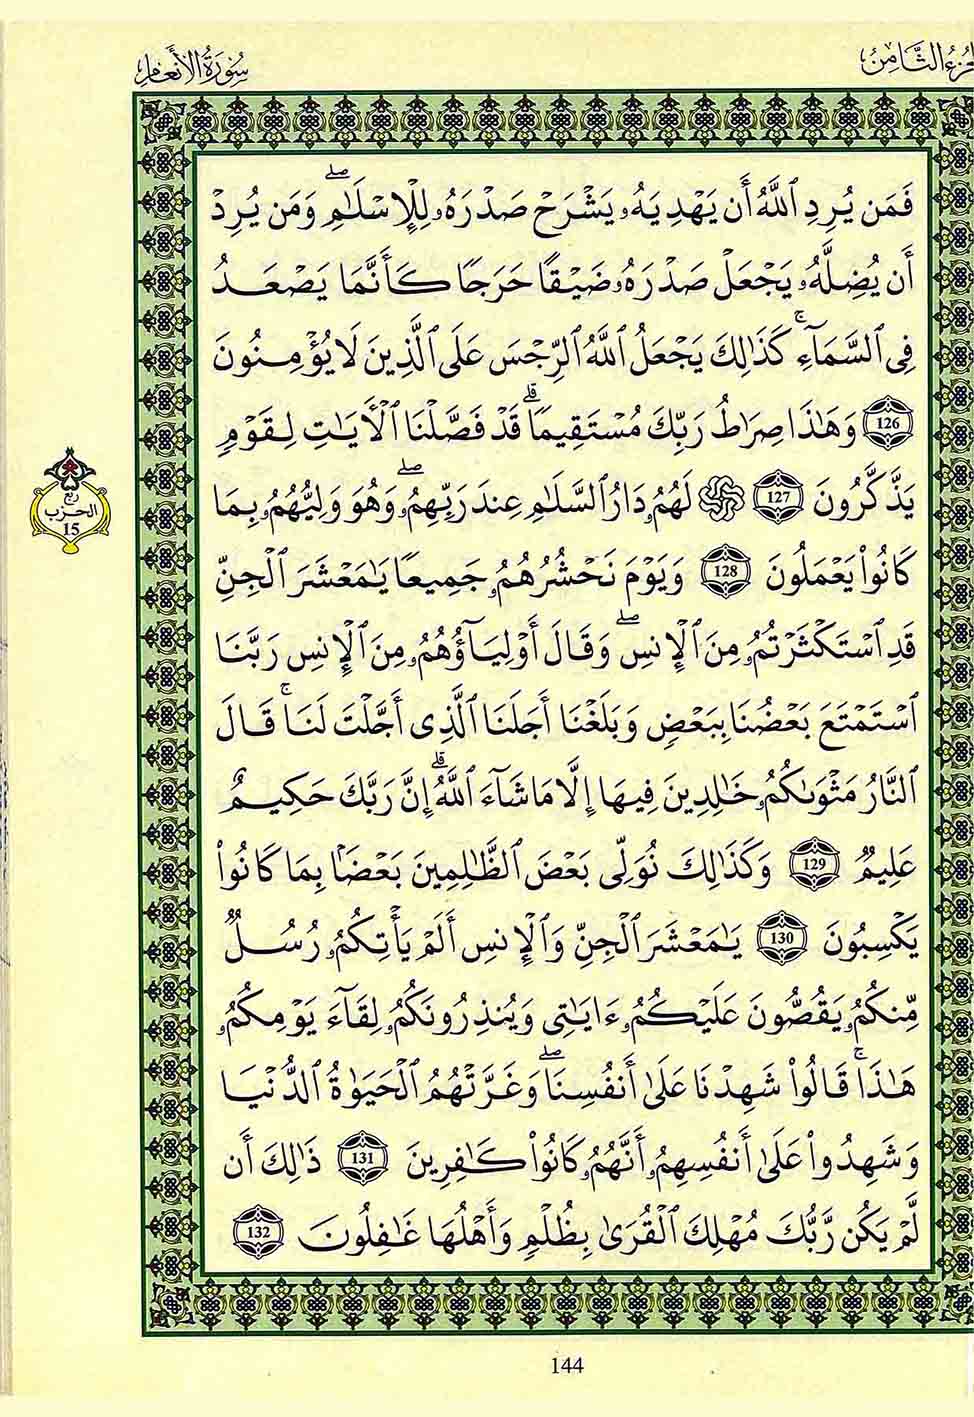 سُورَةُ الأَنْعَامِ
الثَّامِنُ
فَمَن يُرِدِ اِ۬للَّهُ أَن يَهْدِيَهُۥ يَشْرَحْ صَدْرَهُۥ لِلْإِسْلَٰمِۖ وَمَن يُرِدْ
أَن يُضِلَّهُۥ يَجْعَلْ صَدْرَهُۥ ضَيْقًا حَرَجًا كَأَنَّمَا يَصْعَدُ
فِي اِ۬لسَّمَآءِۚ كَذَٰلِكَ يَجْعَلُ اُ۬للَّهُ اُ۬لرِّجْسَ عَلَى اَ۬لَّذِينَ لَا يُؤْمِنُونَ
126 وَهَٰذَا صِرَٰطُ رَبِّكَ مُسْتَقِيمًاۗ قَدْ فَصَّلْنَا اَ۬لْأٓيَٰتِ لِقَوْمٍ
يَذَّكَّرُونَ 127 ۞ لَهُمُۥ دَارُ اُ۬لسَّلَٰمِ عِندَ رَبِّهِمُۥۖ وَهُوَ وَلِيُّهُمُۥ بِمَا
كَانُواْ يَعْمَلُونَ 128 وَيَوْمَ نَحْشُرُهُمُۥ جَمِيعًا يَٰمَعْشَرَ اَ۬لْجِنِّ
قَدِ اِ۪سْتَكْثَرْتُمُۥ مِنَ اَ۬لْإِنسِۖ وَقَالَ أَوْلِيَآؤُهُمُۥ مِنَ اَ۬لْإِنسِ رَبَّنَا
اَ۪سْتَمْتَعَ بَعْضُنَا بِبَعْضٍ وَبَلَغْنَا أَجَلَنَا اَ۬لَّذِي أَجَّلْتَ لَنَاۚ قَالَ
اَ۬لنَّارُ مَثْوَىٰكُمُۥ خَٰلِدِينَ فِيهَا إِلَّا مَا شَآءَ اَ۬للَّهُۗ إِنَّ رَبَّكَ حَكِيمٌ
عَلِيمٌ 129 وَكَذَٰلِكَ نُوَلِّي بَعْضَ اَ۬لظَّٰلِمِينَ بَعْضًا بِمَا كَانُواْ
يَكْسِبُونَ 130 يَٰمَعْشَرَ اَ۬لْجِنِّ وَاَلْإِنسِ أَلَمْ يَأْتِكُمُۥ رُسُلٌ
مِّنكُمُۥ يَقُصُّونَ عَلَيْكُمُۥ ءَايَٰتِي وَيُنذِرُونَكُمُۥ لِقَآءَ يَوْمِكُمُۥ
هَٰذَاۚ قَالُواْ شَهِدْنَا عَلَىٰ أَنفُسِنَاۖ وَغَرَّتْهُمُ اُ۬لْحَيَوٰةُ اُ۬لدُّنْيَا
وَشَهِدُواْ عَلَىٰ أَنفُسِهِمُۥ أَنَّهُمُۥ كَانُواْ كَٰفِرِينَ 131 ذَٰلِكَ أَن
لَّمْ يَكُن رَّبُّكَ مُهْلِكَ اَ۬لْقُرَىٰ بِظُلْمٍ وَأَهْلُهَا غَٰفِلُونَ 132
ربع
الحزب
15
144